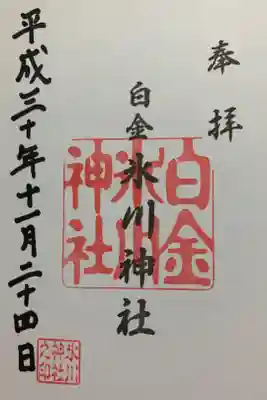 奉拝
白金氷川神社
白金氷川神社
平成三十年十一月二十四日
氷川神社之印